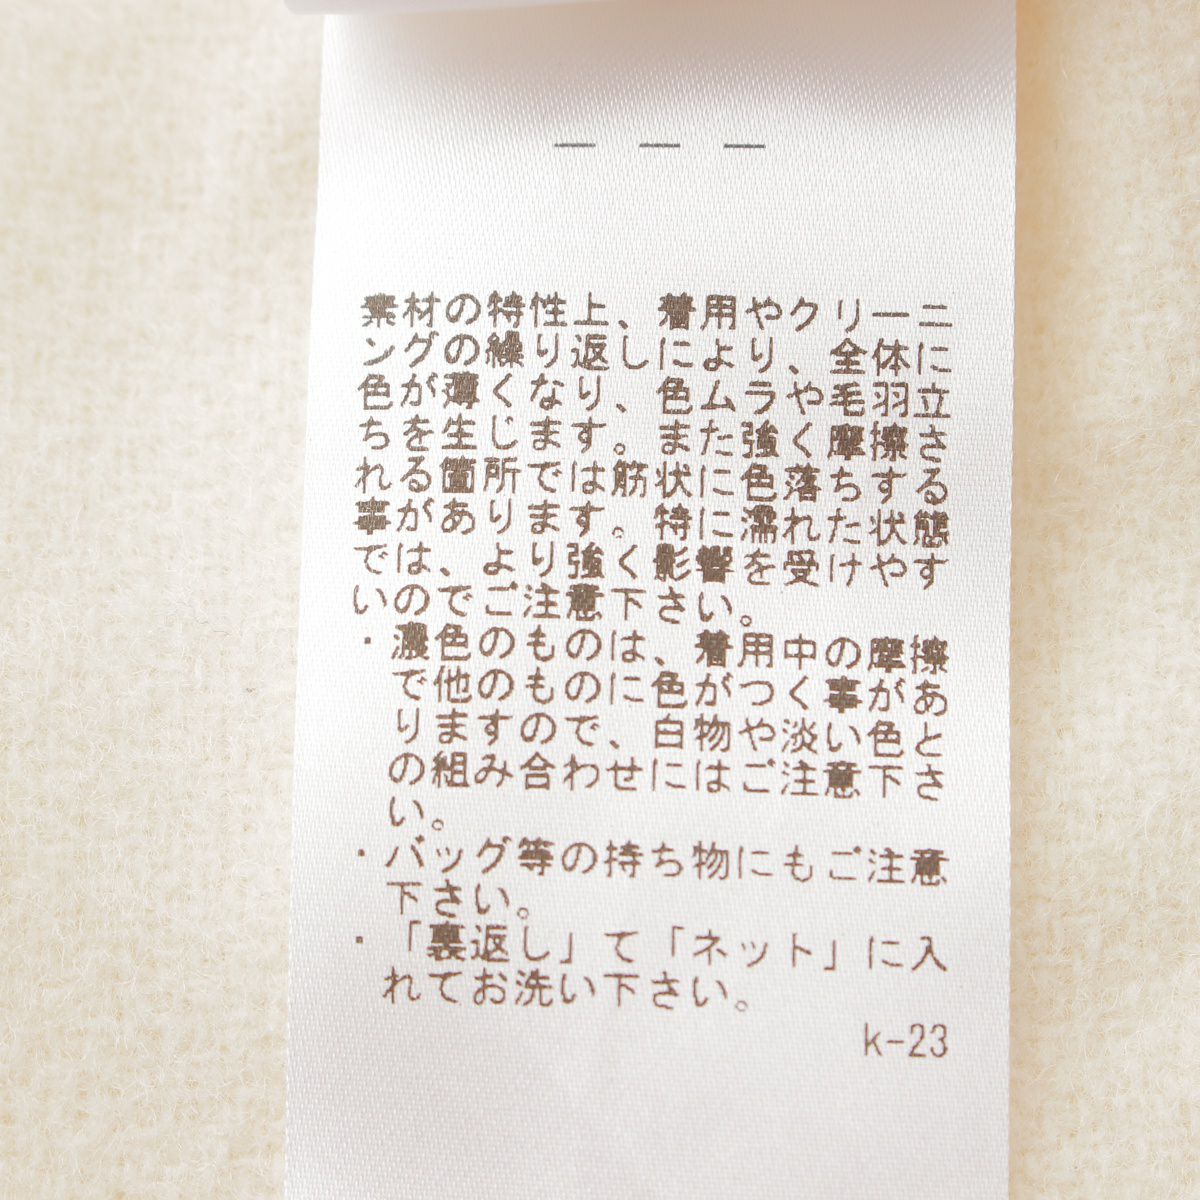 — — —
素材の特性上、着用やクリーニ
ングの繰り返しにより、全体に
色が薄くなり、色ムラや毛羽立
ちを生じます。また強く摩擦さ
れる箇所では筋状に色落ちする
事があります。特に濡れた状態
では、より強く影響を受けやす
いのでご注意下さい。
・濃色のものは、着用中の摩擦
で他のものに色がつく事があ
りますので、白物や淡い色と
の組み合わせにはご注意下さ
い。
・バッグ等の持ち物にもご注意
下さい。
・「裏返し」て「ネット」に入
れてお洗い下さい。
k-23